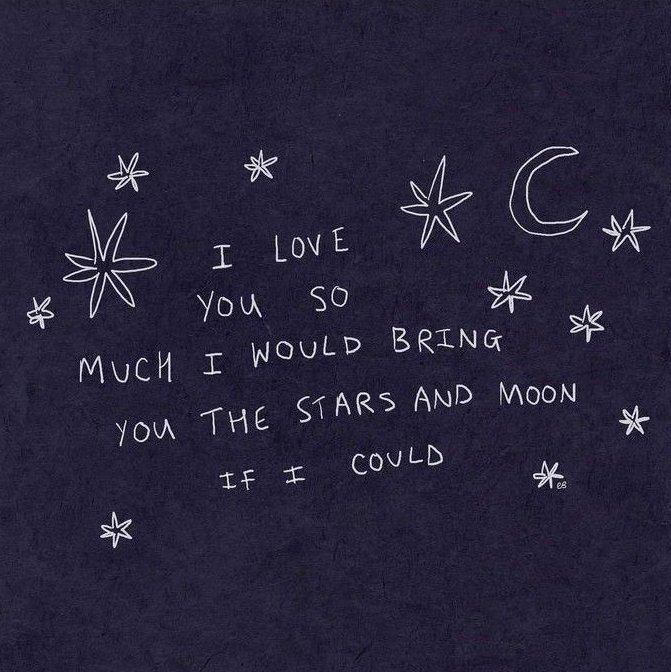 I LOVE
YOU SO
MUCH I WOULD BRING
YOU THE STARS AND MOON
IF I COULD